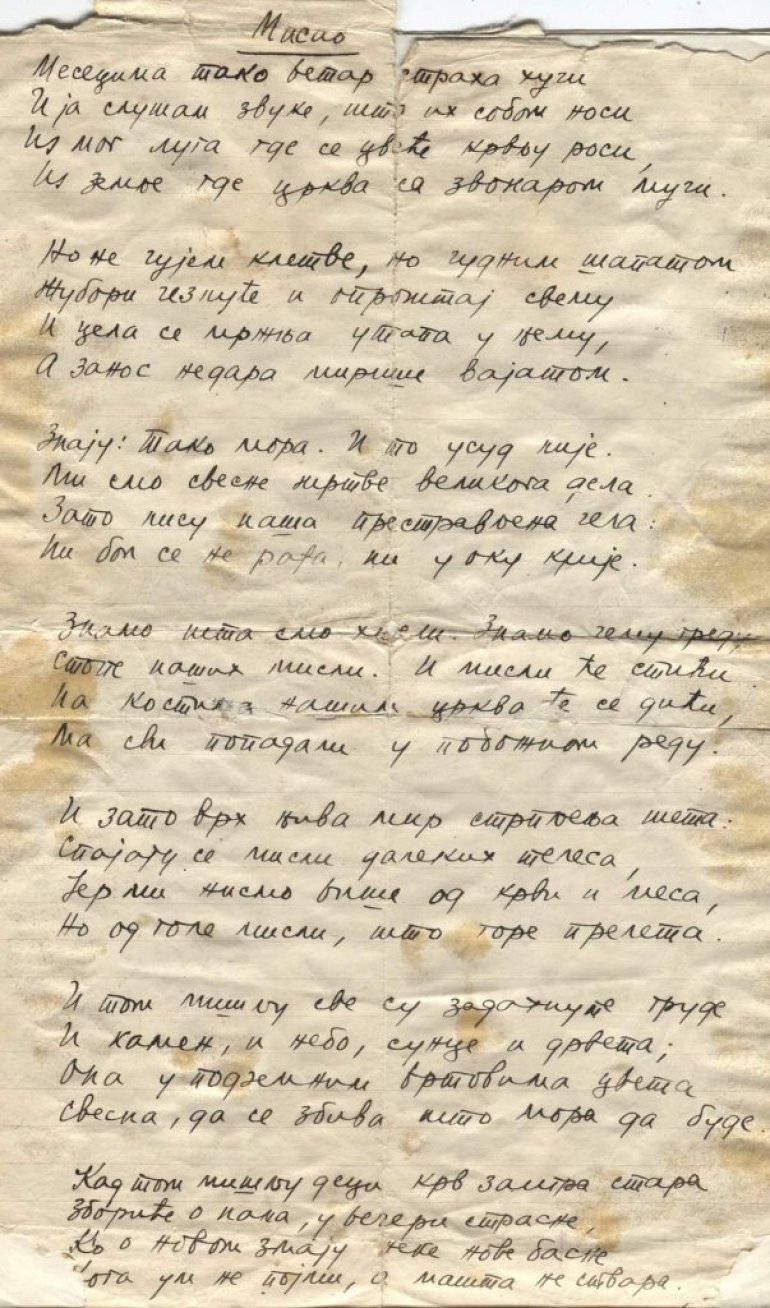 Мисао
Месецима тако ветар страха хучи
И ја слушам звуке, што их собом носи
Из мог луга где се цвеће крвљу роси,
Из земље где црква са звонаром мучи.
Но не чујем клетве, но чудним шапатом
Жубори чезнуће и опроштај свему
И цела се мржња утапа у њему,
А занос недара мирише вајатом.
Знају: тако мора. И то усуд није.
Ми смо свесне жртве великога дела.
Зато нису наша престрављена чела:
Ни бол се не рађа, ни у оку крије.
Знамо шта смо хтели. Знамо чему греду
Стопе наших мисли. И мисли ће стићи.
На костима нашим црква ће се дићи,
Ма сви попадали у побожном реду.
И зато врх њива мир стрпљења шета.
Спајају се мисли далеких телеса,
Јер ми нисмо више од крви и меса,
Но од голе мисли, што горе прелета.
И том мишљу све су задахнуте груде
И камен, и небо, сунце и дрвета;
Она у подземним вртовима цвета
Свесна, да се збива што мора да буде.
Кад том мишљу деци крв заигра стара
Збориће о нама, у вечери страсне,
Ко о новом змају неке нове басне
Кога ум не појми, а машта не ствара.